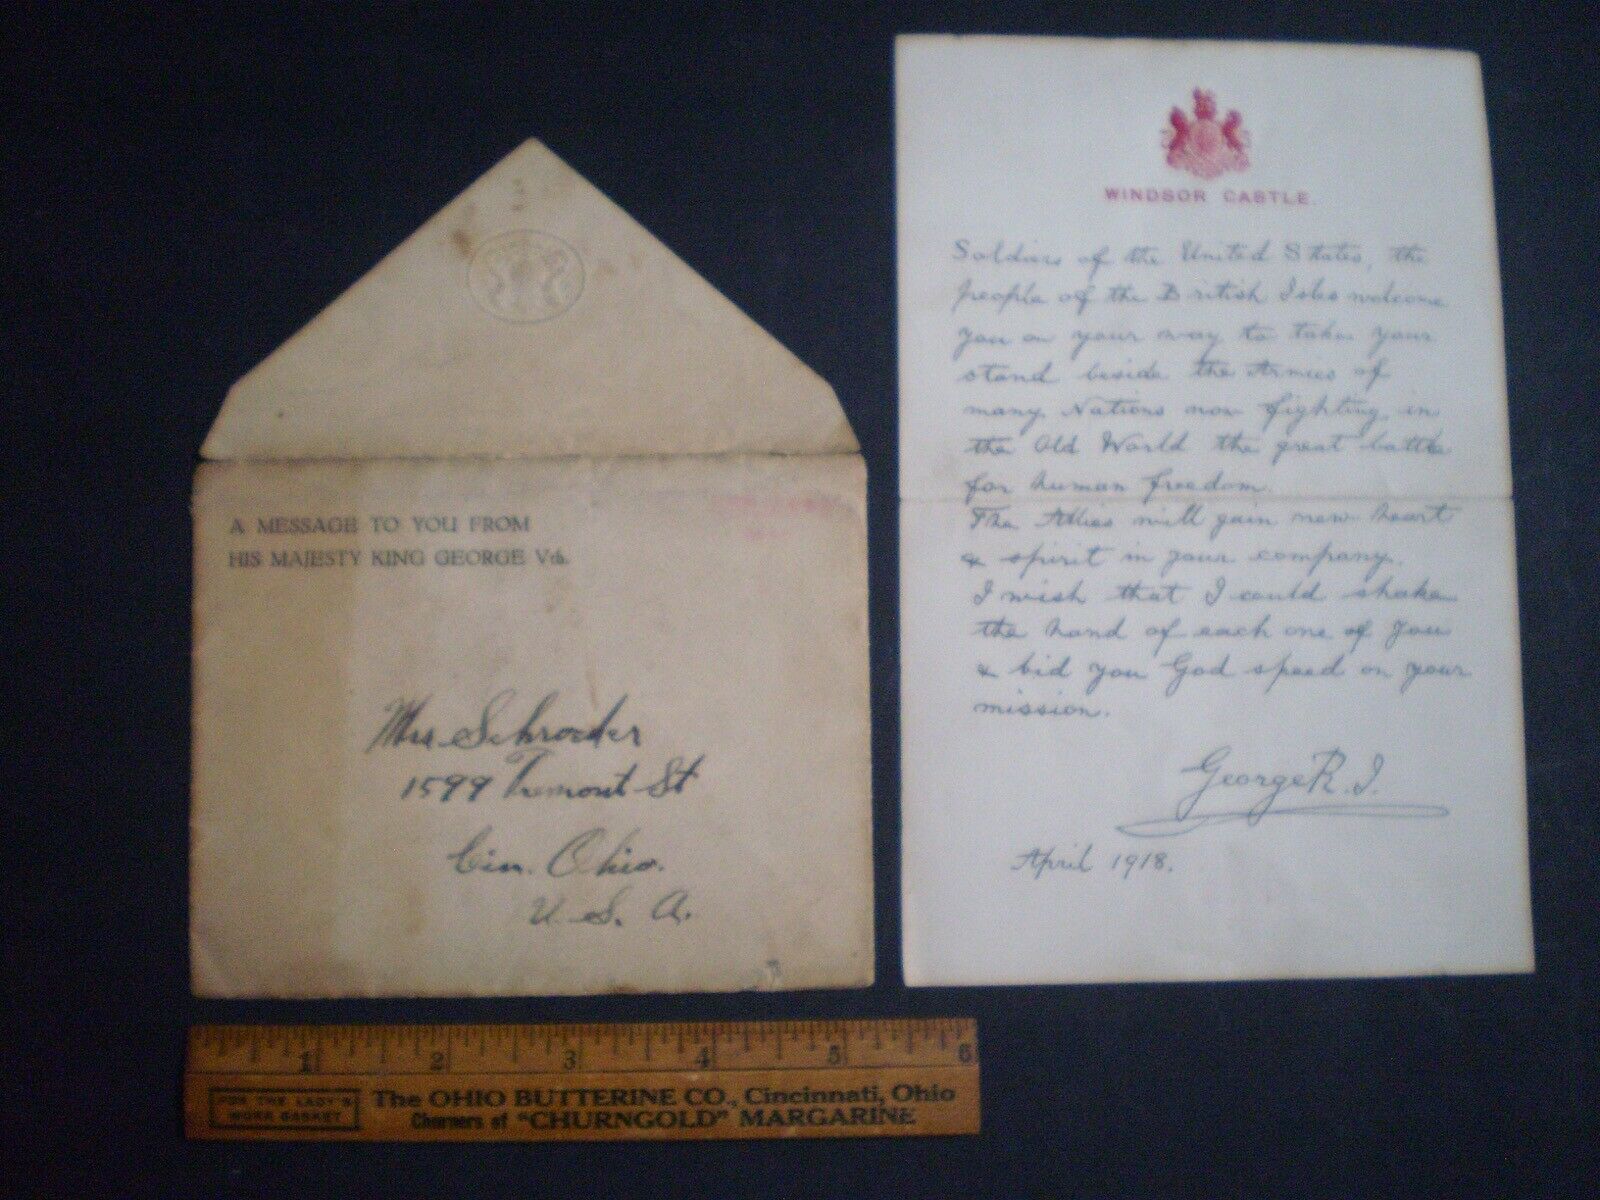 A MESSAGE TO YOU FROM
HIS MAJESTY KING GEORGE Vth.
Mrs Schroeder
1599 Tremont St
Cin. Ohio.
U. S. A.
WINDSOR CASTLE
Soldiers of the United States, the
people of the British Isles welcome
you on your way to take your
stand beside the Armies of
many Nations now fighting in
the Old World the great battle
for human freedom.
The Allies will gain new heart
& spirit in your company.
I wish that I could shake
the hand of each one of you
& bid you God speed on your
mission.
George R.I.
April 1918.
1 2 3 4 5 6
FOR THE LADY'S
WORK BASKET
The OHIO BUTTERINE CO., Cincinnati, Ohio
Churners of "CHURNGOLD" MARGARINE